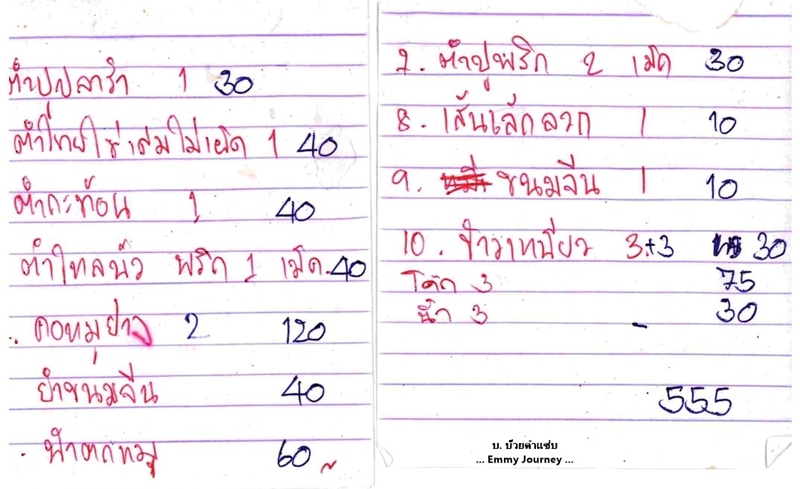 ตำปูปลาร้า 1 30
ตำไทยใช่เส้มไม่เผ็ด 1 40
ตำกะท้อน 1 40
ตำไทลบัว พริก 1 เม็ด. 40
. คอหมูย่าง 2 120
ยำขนมจีน 40
. น้ำตกหมู 60 ~
7. ตำปูพริก 2 เม็ด 30
8. เส้นเล้กลวก 1 10
9. ขนมจีน 1 10
10. ข้าวเหนียว 3+3 30
โค้ก 3 75
น้ำ 3 30
555
บ. บ้วยตำแซ่บ
... Emmy Journey ...